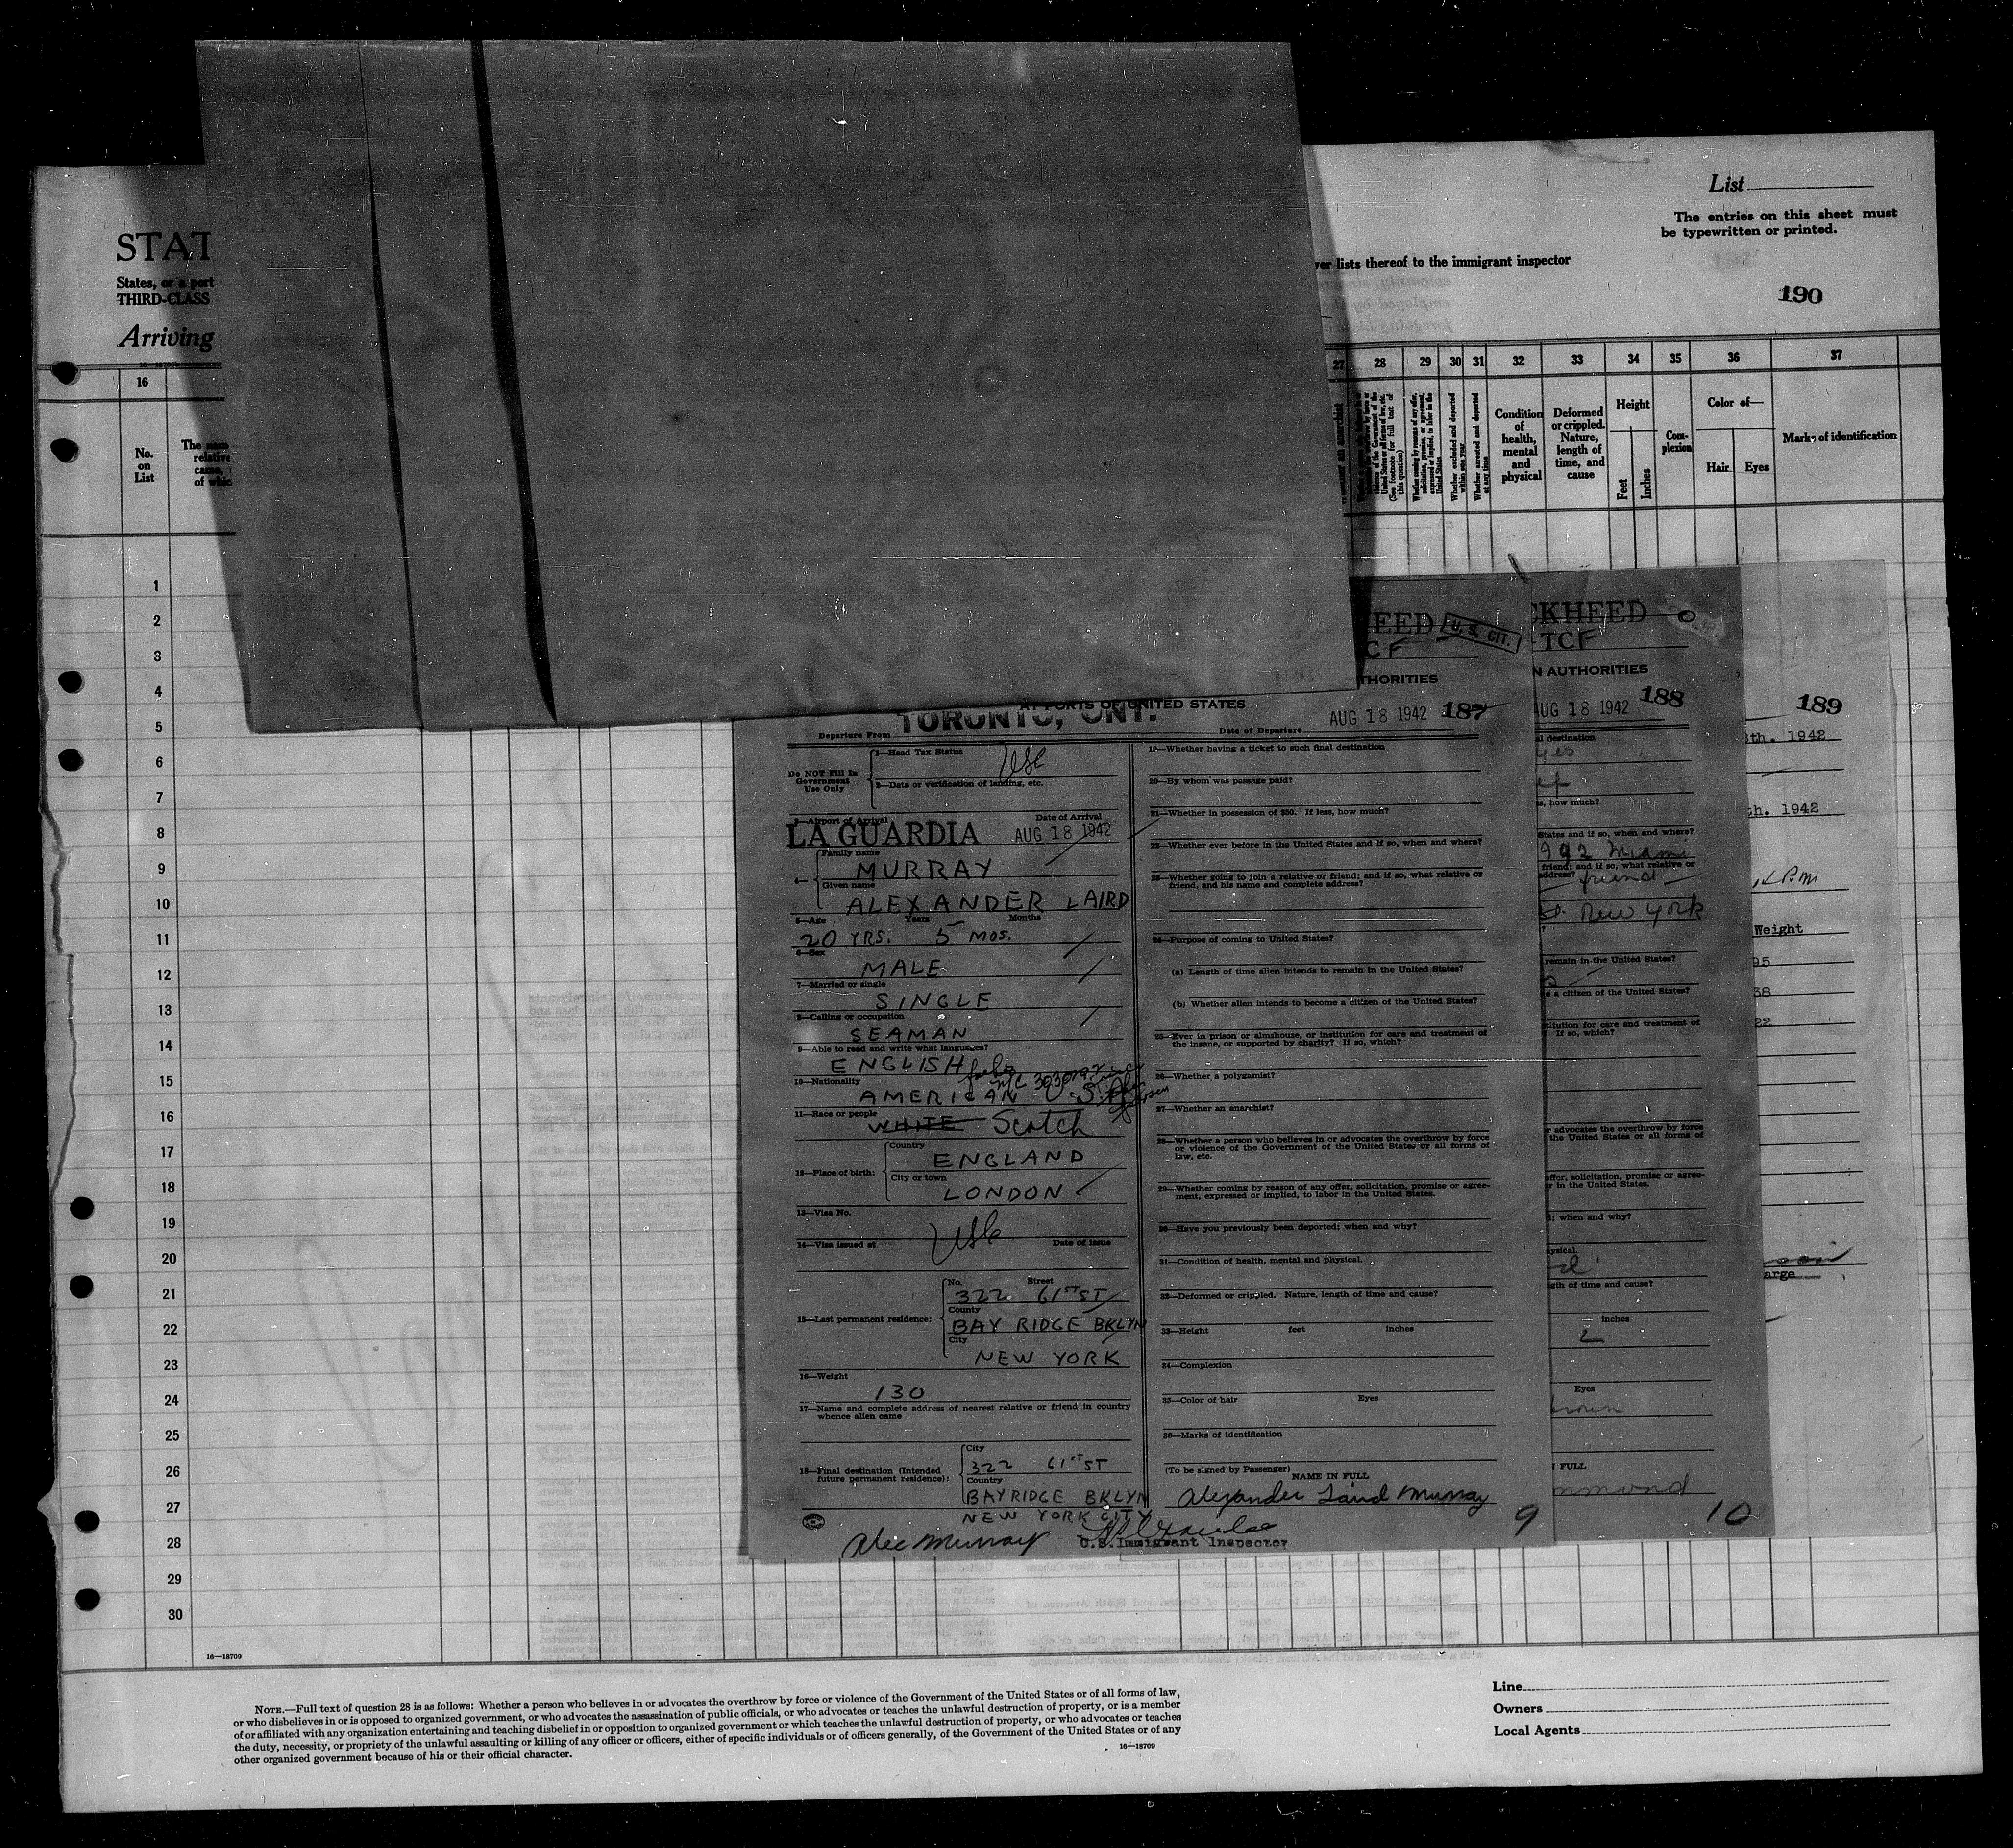 List
The entries on this sheet must
be typewritten or printed.
STAT
States, or a port
THIRD-CLASS
Arriving
ver lists thereof to the immigrant inspector
190
16
27 28 29 30 31 32 33 34 35 36 37
No.
on
List
Whether excluded and deported
within one year
Whether arrested and deported
at any time
Condition
of
health,
mental
and
physical
Deformed
or crippled.
Nature,
length of
time, and
cause
Height
Feet
Inches
Com-
plexion
Color of—
Hair
Eyes
Marks of identification
1
2
3
4
5
6
7
8
9
10
11
12
13
14
15
16
17
18
19
20
21
22
23
24
25
26
27
28
29
30
EED
U. S. CIT.
CF
THORITIES
AT PORTS OF UNITED STATES
Departure From TORONTO, ONT.
Date of Departure AUG 18 1942 187
Do NOT Fill In
Government
Use Only
1—Head Tax Status
USC
2—Data or verification of landing, etc.
3—Airport of Arrival
Date of Arrival
LA GUARDIA AUG 18 1942
4—
Family name
MURRAY
Given name
ALEXANDER LAIRD
5—Age Years Months
20 YRS. 5 MOS.
6—Sex
MALE
7—Married or single
SINGLE
8—Calling or occupation
SEAMAN
9—Able to read and write what languages?
ENGLISH
10—Nationality
AMERICAN U.S.A.
11—Race or people
WHITE Scotch
12—Place of birth:
Country
ENGLAND
City or town
LONDON
13—Visa No.
USC
14—Visa issued at Date of issue
15—Last permanent residence:
No. Street
322 61ST ST
County
BAY RIDGE BKLYN
City
NEW YORK
16—Weight
130
17—Name and complete address of nearest relative or friend in country
whence alien came
18—Final destination (Intended
future permanent residence):
City
322 61ST ST
Country
BAYRIDGE BKLYN
NEW YORK CITY
Alec Murray
U.S. Immigrant Inspector
19—Whether having a ticket to such final destination
20—By whom was passage paid?
21—Whether in possession of $50. If less, how much?
22—Whether ever before in the United States and if so, when and where?
23—Whether going to join a relative or friend; and if so, what relative or
friend, and his name and complete address?
24—Purpose of coming to United States?
(a) Length of time alien intends to remain in the United States?
(b) Whether alien intends to become a citizen of the United States?
25—Ever in prison or almshouse, or institution for care and treatment of
the insane, or supported by charity? If so, which?
26—Whether a polygamist?
27—Whether an anarchist?
28—Whether a person who believes in or advocates the overthrow by force
or violence of the Government of the United States or all forms of
law, etc.
29—Whether coming by reason of any offer, solicitation, promise or agree-
ment, expressed or implied, to labor in the United States.
30—Have you previously been deported; when and why?
31—Condition of health, mental and physical.
32—Deformed or crippled. Nature, length of time and cause?
33—Height feet inches
34—Complexion
35—Color of hair Eyes
36—Marks of identification
(To be signed by Passenger)
NAME IN FULL
Alexander Laird Murray
9
CKHEED
-TCF
N AUTHORITIES
AUG 18 1942 188
al destination
yes
s, how much?
States and if so, when and where?
Miami
friend; and if so, what relative or
address?
friend
St. New York
remain in the United States?
e a citizen of the United States?
titution for care and treatment of
If so, which?
r advocates the overthrow by force
the United States or all forms of
offer, solicitation, promise or agree-
r in the United States.
; when and why?
ysical.
gth of time and cause?
inches
2
Eyes
rown
N FULL
mmond
10
189
th. 1942
th. 1942
Weight
95
38
22
arge
16—18709
NOTE.—Full text of question 28 is as follows: Whether a person who believes in or advocates the overthrow by force or violence of the Government of the United States or of all forms of law,
or who disbelieves in or is opposed to organized government, or who advocates the assassination of public officials, or who advocates or teaches the unlawful destruction of property, or is a member
of or affiliated with any organization entertaining and teaching disbelief in or opposition to organized government or which teaches the unlawful destruction of property, or who advocates or teaches
the duty, necessity, or propriety of the unlawful assaulting or killing of any officer or officers, either of specific individuals or of officers generally, of the Government of the United States or of any
other organized government because of his or their official character.
16—18709
Line
Owners
Local Agents